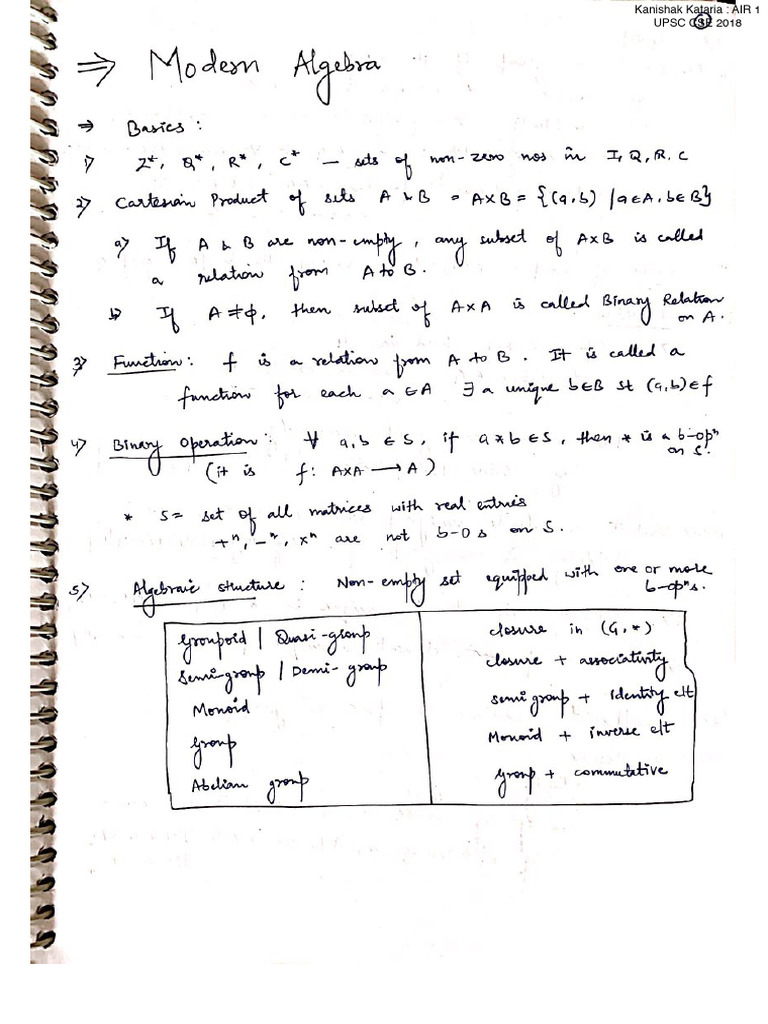 Kanishak Kataria : AIR 1
UPSC CSE 2018
⇒ Modern Algebra
⇒ Basics :
1) Z*, Q*, R*, C* — sets of non-zero nos in I, Q, R, C
2) Cartesian Product of sets A & B = A×B = {(a,b) / a∈A, b∈B}
a) If A & B are non-empty, any subset of A×B is called
a relation from A to B.
b) If A≠ϕ, then subset of A×A is called Binary Relation
on A.
3) Function : f is a relation from A to B. It is called a
function for each a∈A ∃ a unique b∈B st (a,b)∈f
4) Binary Operation : ∀ a,b ∈ S, if a*b ∈ S, then * is a b-opⁿ
on S.
(it is f: A×A → A)
* S= set of all matrices with real entries
+ⁿ, -ⁿ, ×ⁿ are not b-o s on S.
5) Algebraic structure : Non-empty set equipped with one or more
b-opⁿs.
Groupoid | Quasi-group closure in (G,*)
Semi-group / Demi-group closure + associativity
Monoid semi group + identity elt
Group Monoid + inverse elt
Abelian group Group + commutative